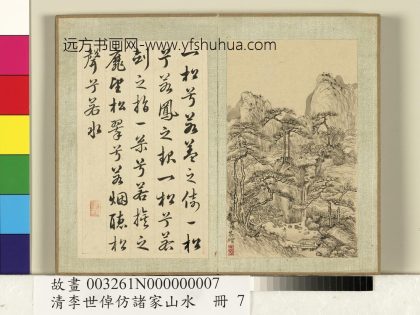 远方书画网-www.yfshuhua.com
一松兮若蓋之倚一松
兮若鳳之一松兮若
之指一兮若之
望松翠兮若烟聽松
聲兮若水
故畫 003261N000000007
清李世倬仿諸家山水 冊 7